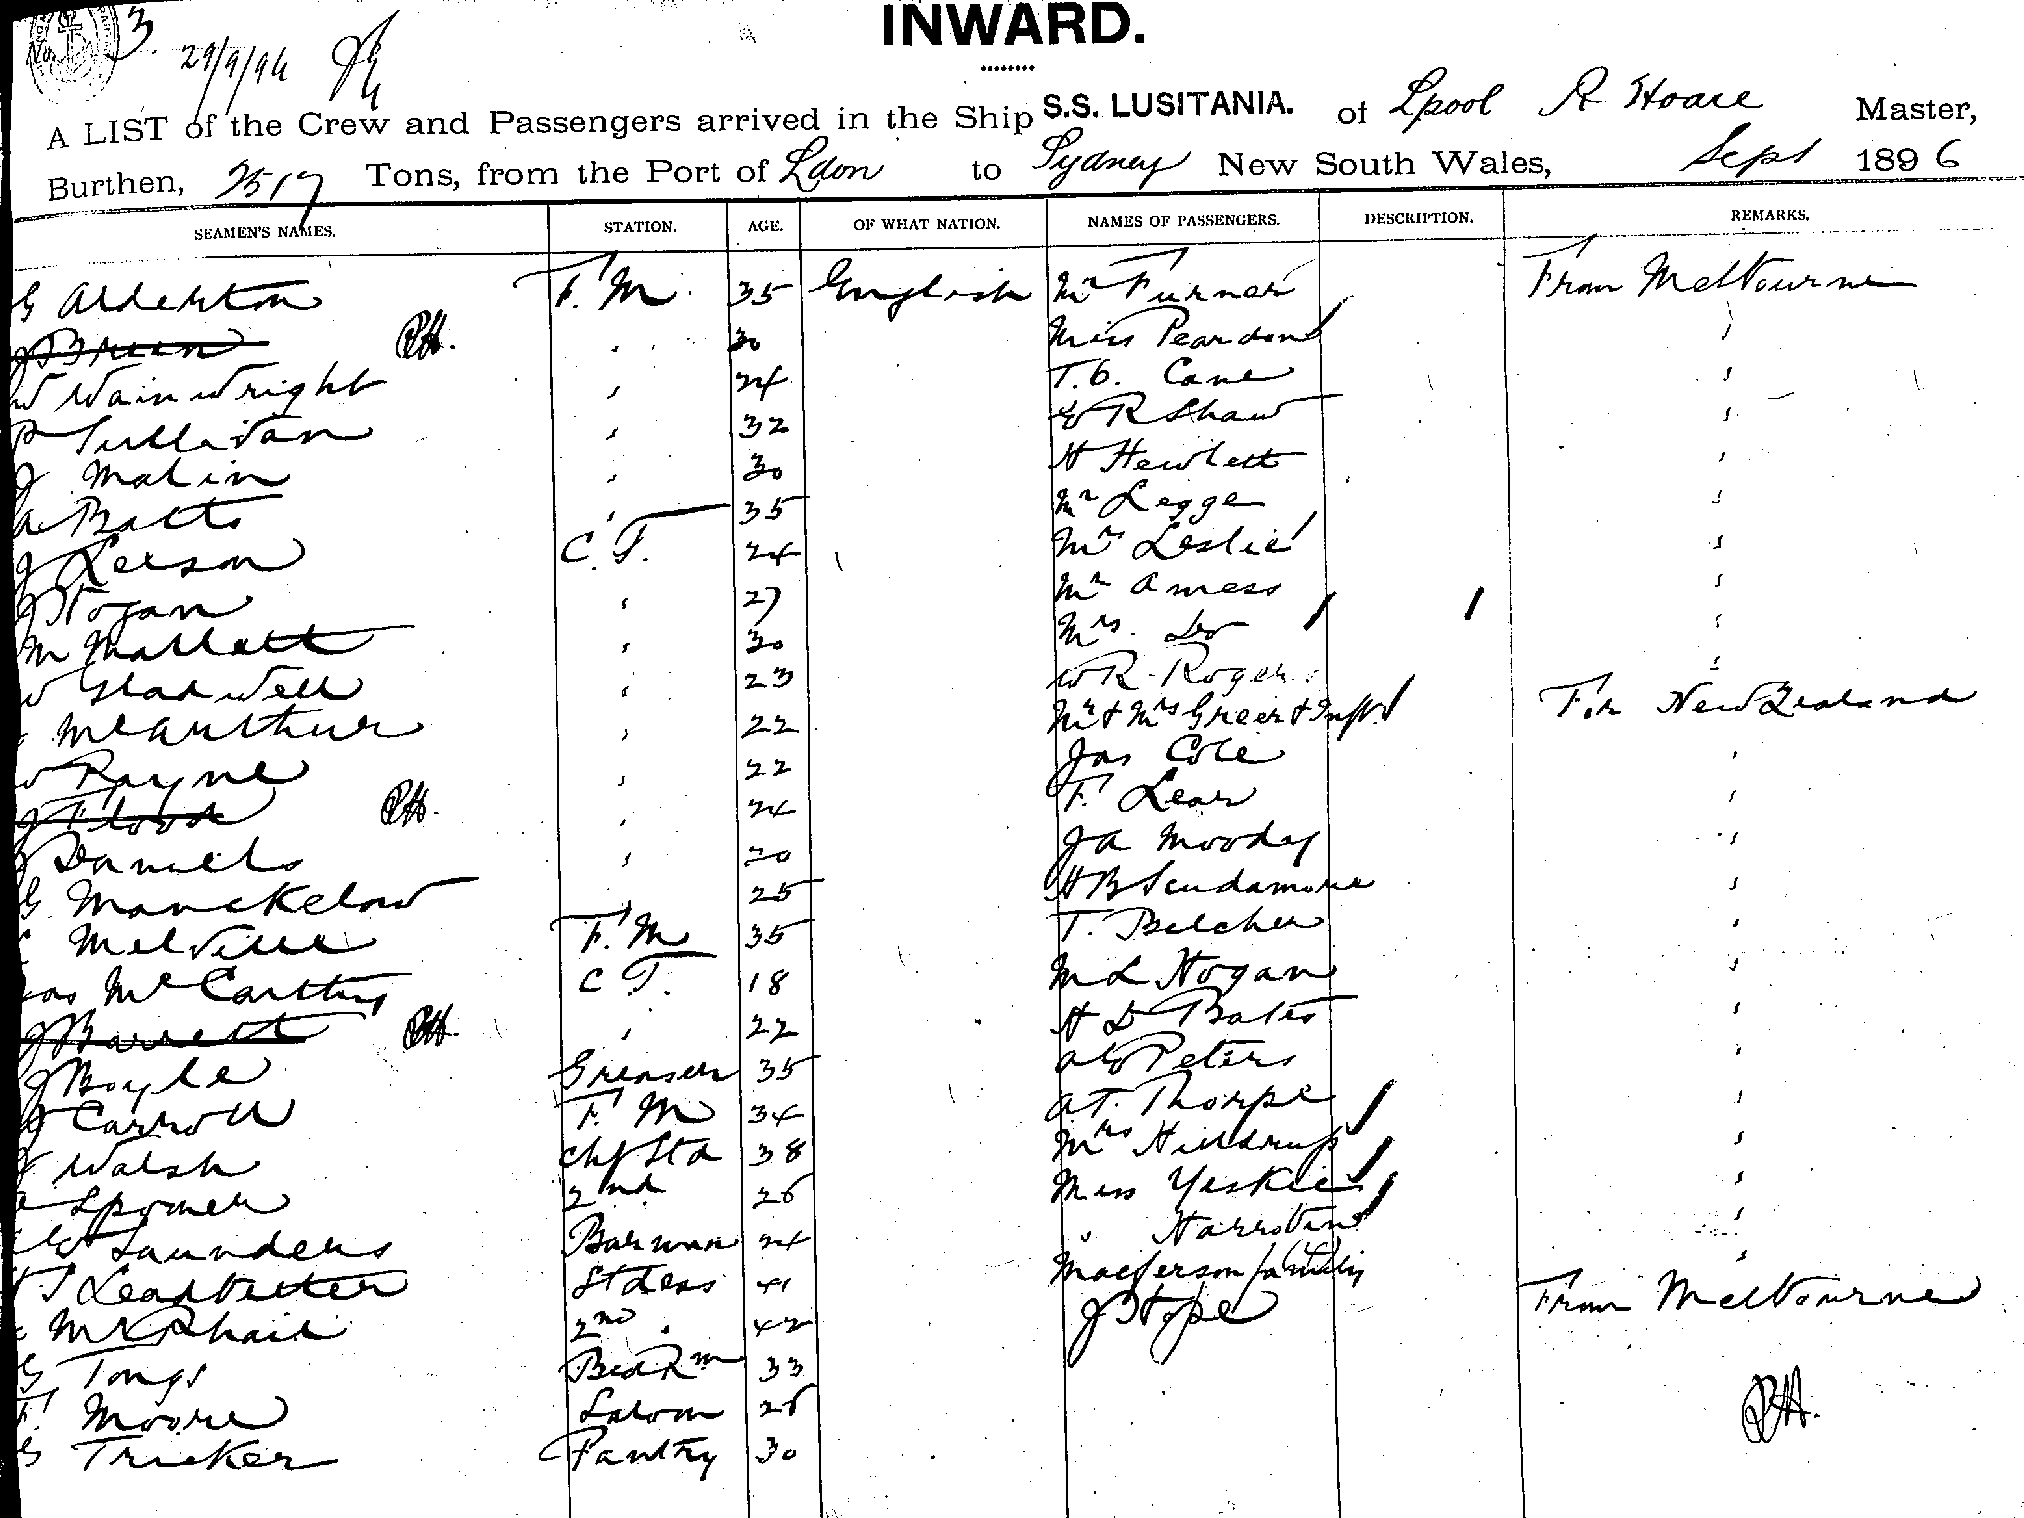 INWARD.
No. 3.
29/9/96
A LIST of the Crew and Passengers arrived in the Ship S.S. LUSITANIA. of Lpool R Hoare Master,
Burthen, 2517 Tons, from the Port of Ldon to Sydney New South Wales, Sept 1896
SEAMEN'S NAMES. STATION. AGE. OF WHAT NATION. NAMES OF PASSENGERS. DESCRIPTION. REMARKS.
G Alderton F.M. 35 English Mr Turner From Melbourne
J Breen RH. 30 Miss Peardon
W Wainwright 24 T.C. Cane
P Sullivan 32 E R Shaw
J Malin 30 H Hewlett
A Batts 35 Mr Legge
J Leeson C.T. 24 Mrs Leslie
J Hogan 27 Mr Amess
M Mallett 30 Mrs. Do
W Gladwell 23 W R. Roger
McArthur 22 Mr & Mrs Greer & Inft. For New Zealand
W Payne 22 Jas Cole
J Flood RH. 24 F. Lear
J Daniels 20 J A Moody
G Manckelow 25 H B Scudamore
Melville F.M 35 T. Belcher
Jas McCarthy C T. 18 M L Hogan
J Barrett RH. 22 H D Bates
J Boyle Greaser 35 A E Peters
J Carroll F. M 34 A T. Thorpe
J Walsh Chf Std 38 Mrs Hildrup
Spooner 2nd 26 Miss Yeskie
W Saunders Barman 24 " Harrotine
T S Leadbetter Stdess 41 Macferson family
McPhail 2nd " 42 J Hope From Melbourne
G Tongs Bed Rm 33
F. Moore Saloon 26 RH.
G Tricker Pantry 30